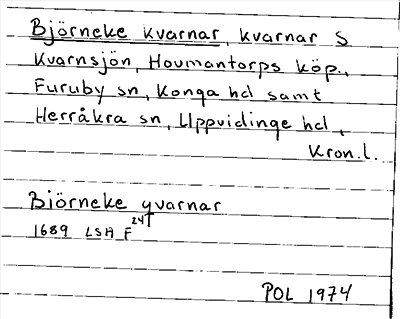 Björneke kvarnar, kvarnar S
Kvarnsjön, Hovmantorps köp.,
Furuby sn, Konga hd samt
Herråkra sn, Uppvidinge hd,
Kron.l.
Biörneke qvarnar
1689 LSA F 241
POL 1974